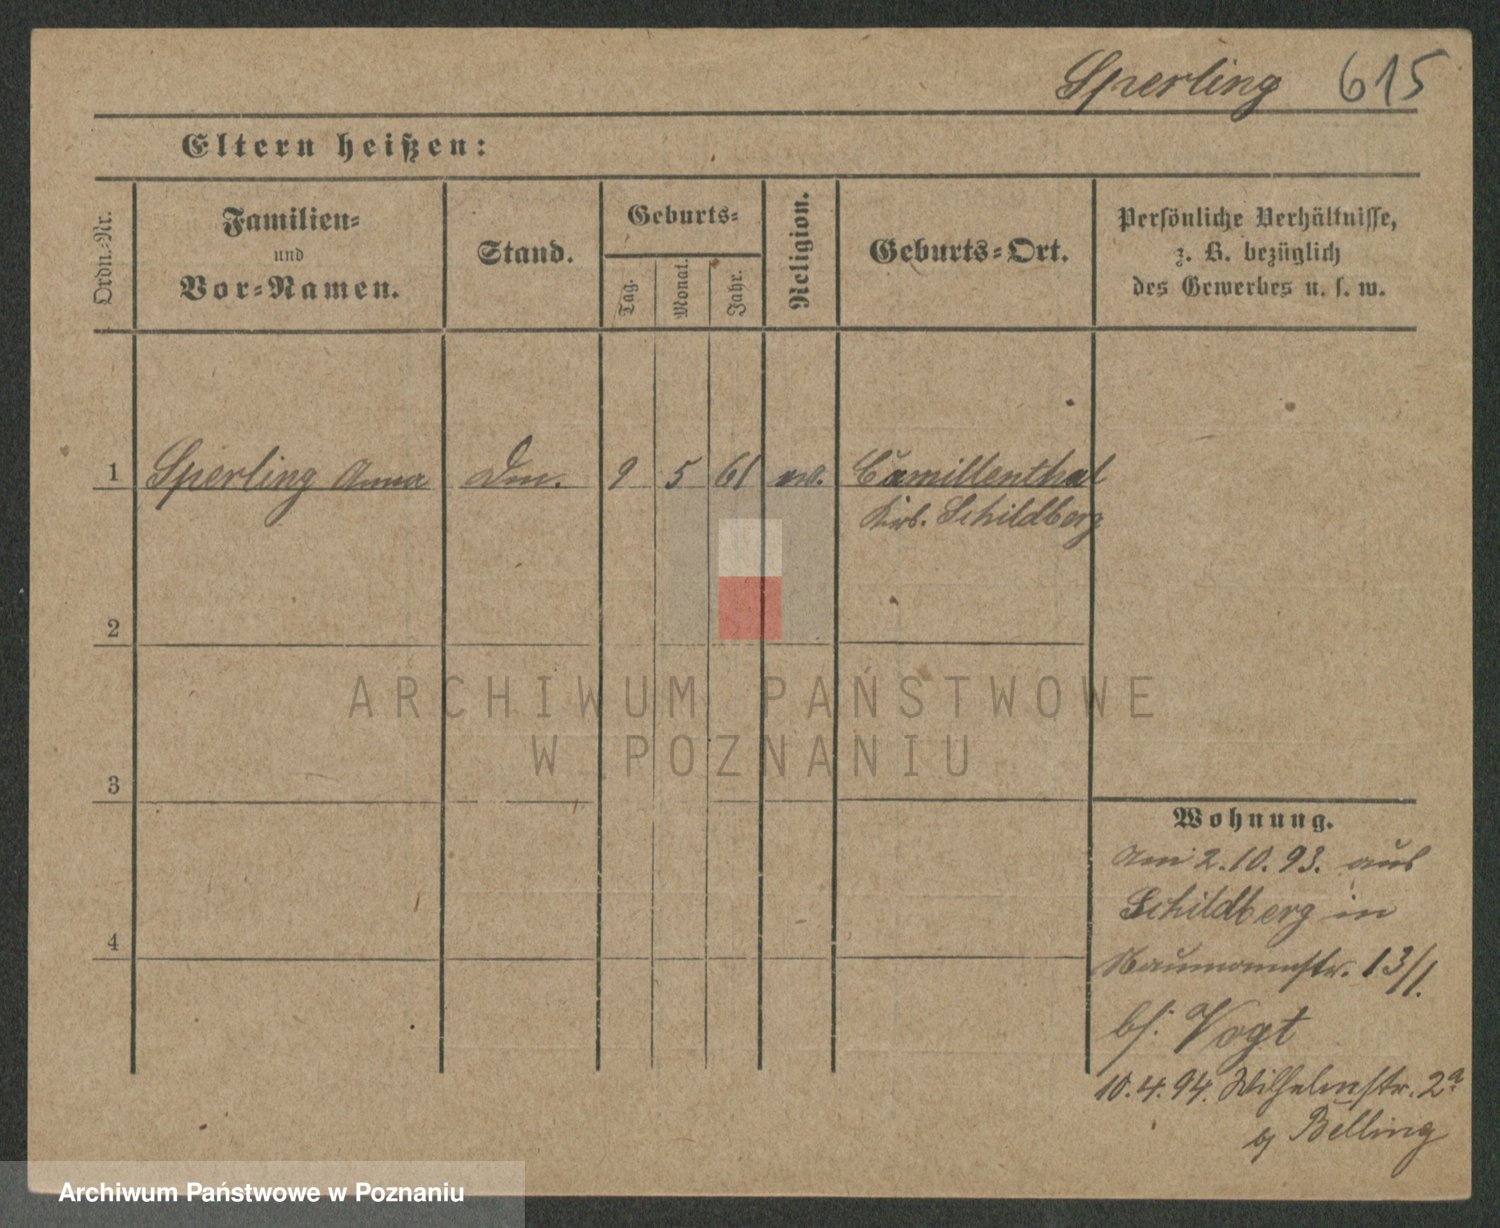 Sperling 615
Eltern heißen:
Ordn.-Nr.
Familien-
und
Vor-Namen.
Stand.
Geburts-
Tag.
Monat.
Jahr.
Religion.
Geburts-Ort.
Persönliche Verhältnisse,
z. B. bezüglich
des Gewerbes u. s. w.
1 Sperling Anna 9 5 61 ev. Camillenthal
Schildberg
2
3
4
Wohnung.
Am 2.10.93. aus
Schildberg in
Naumannstr. 13/1.
bf: Vogt
10.4.94. Wilhelmstr. 2a
Belling
ARCHIWUM PAŃSTWOWE
W POZNANIU
Archiwum Państwowe w Poznaniu